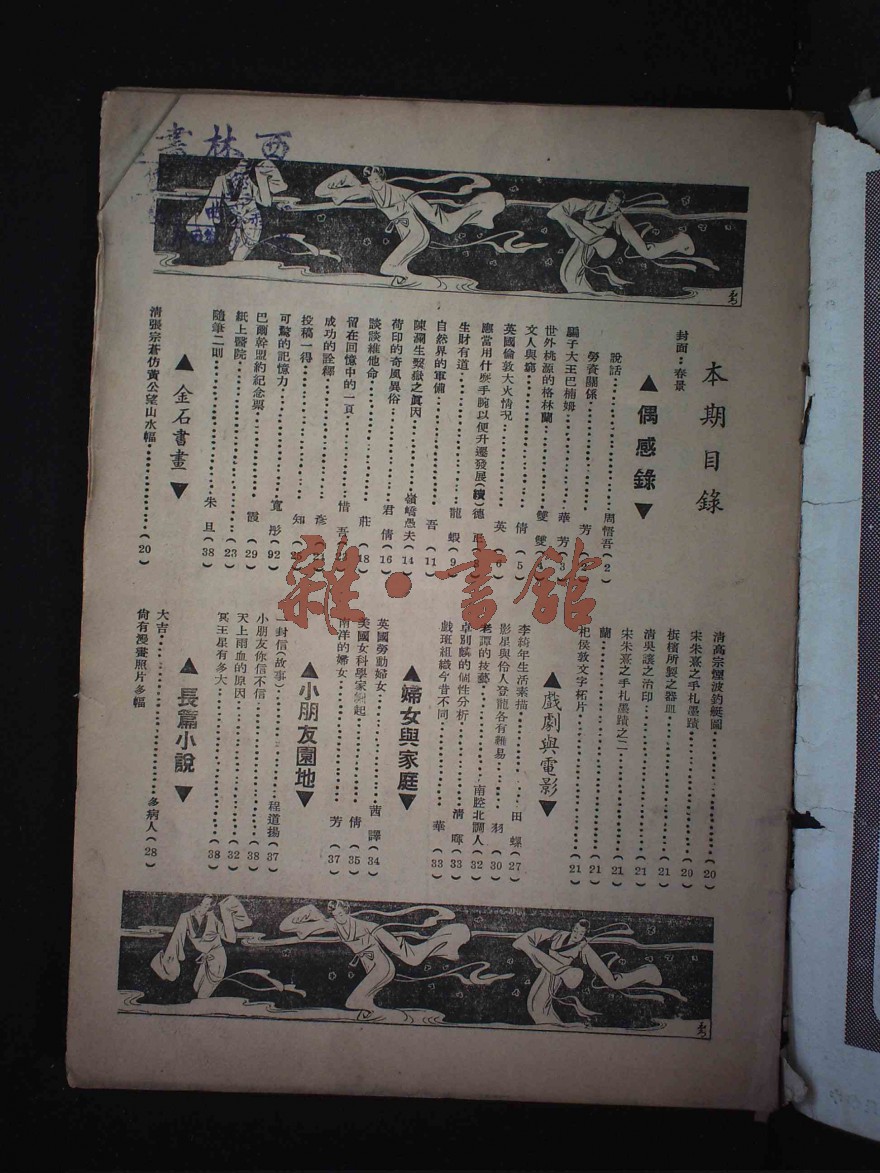 西林書
本期目錄
封面：春景
▲偶感錄▼
說話………周悟吾（2）
勞資關係………芳（2）
騙子大王巴楠姆………華芳（3）
世外桃源的格林蘭………雙雙（4）
文人與窮………倩（5）
英國倫敦大火情況………英（6）
應當用什麼手腕以便升遷發展（續）德正
生財有道………龍蝦（9）
自然界的軍備………吾（11）
陳瀾生繫獄之眞因………嶺嶠愚夫（14）
荷印的奇風異俗………君倩（16）
談談維他命………莊（18）
留在回憶中的一頁………惜吾
成功的詮釋………彥
投稿一得………知
可驚的記憶力………寬彤（92）
巴爾幹盟約紀念票………霞（29）
紙上醫院………（23）
隨筆二則………朱旦（38）
▲金石書畫▼
清張宗蒼仿黃公望山水幅………（20）
清高宗煙波釣艇圖………（20）
宋朱熹之手札墨蹟………（20）
檳檳所製之器皿………（21）
清吳讓之治印………（21）
宋朱熹之手札墨蹟之二………（21）
蘭………（21）
杞侯敦文字柘片………（21）
▲戲劇與電影▼
李綺年生活素描………田螺（27）
影星與伶人登龍各有難易………羽（30）
老譚的技藝………南腔北調人（32）
卓別麟的個性分析………清啄（33）
戲班組織今昔不同………華（33）
▲婦女與家庭▼
英國勞動婦女………茜譯（34）
美國女科學家崛起………倩（35）
南洋的婦女………芳（37）
▲小朋友園地▼
一封信（故事）………程道揚（37）
小朋友你信不信………（38）
天上雨血的原因………（32）
冥王星有多大………（38）
▲長篇小說▼
大吉………多病人（28）
尙有漫畫照片多幅
雜·書館